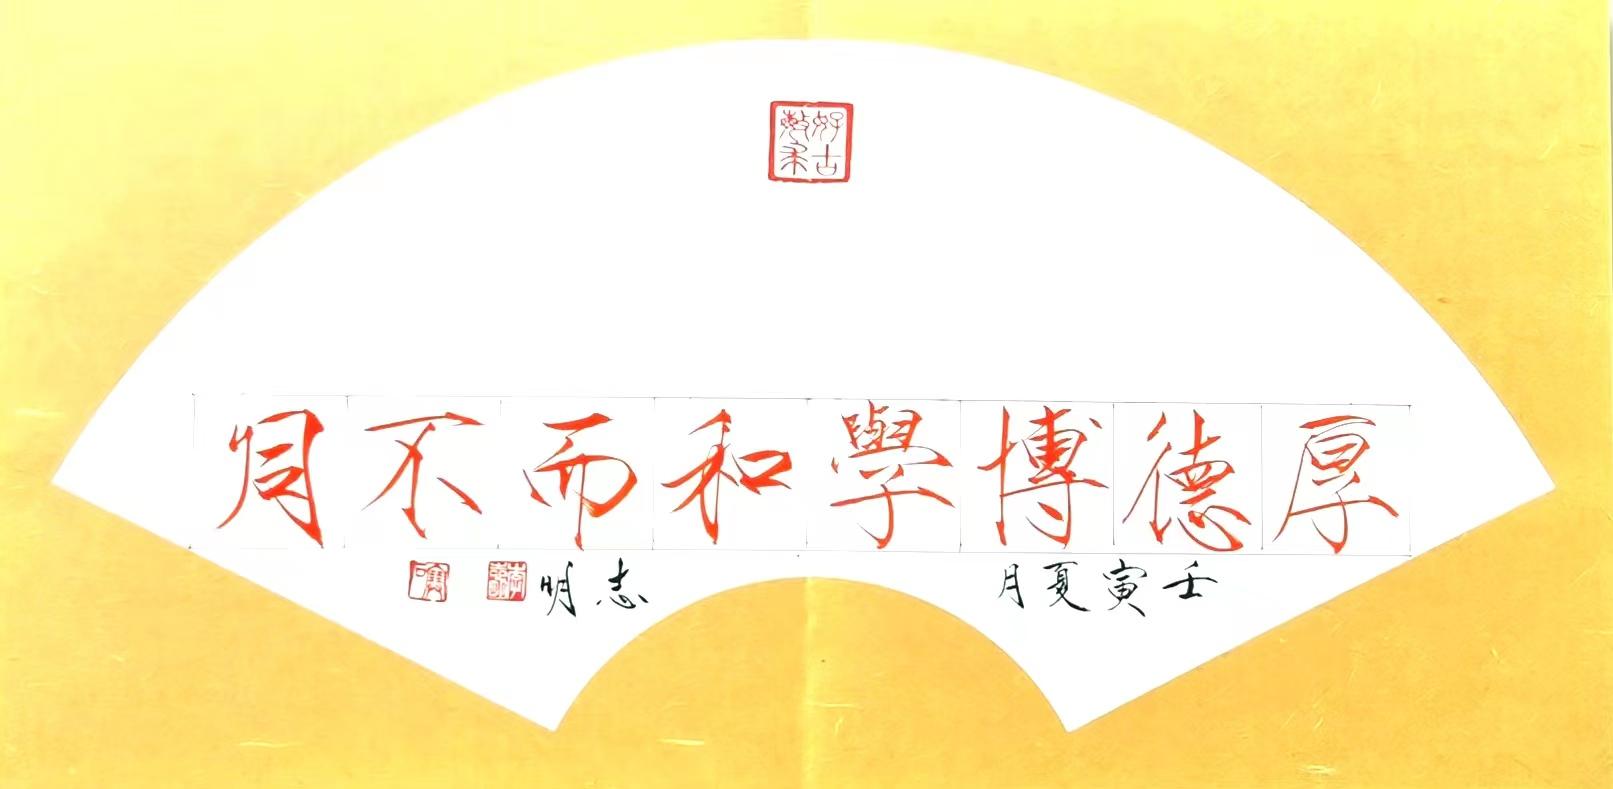 好古敏求
厚德博學和而不同
壬寅夏月
志明